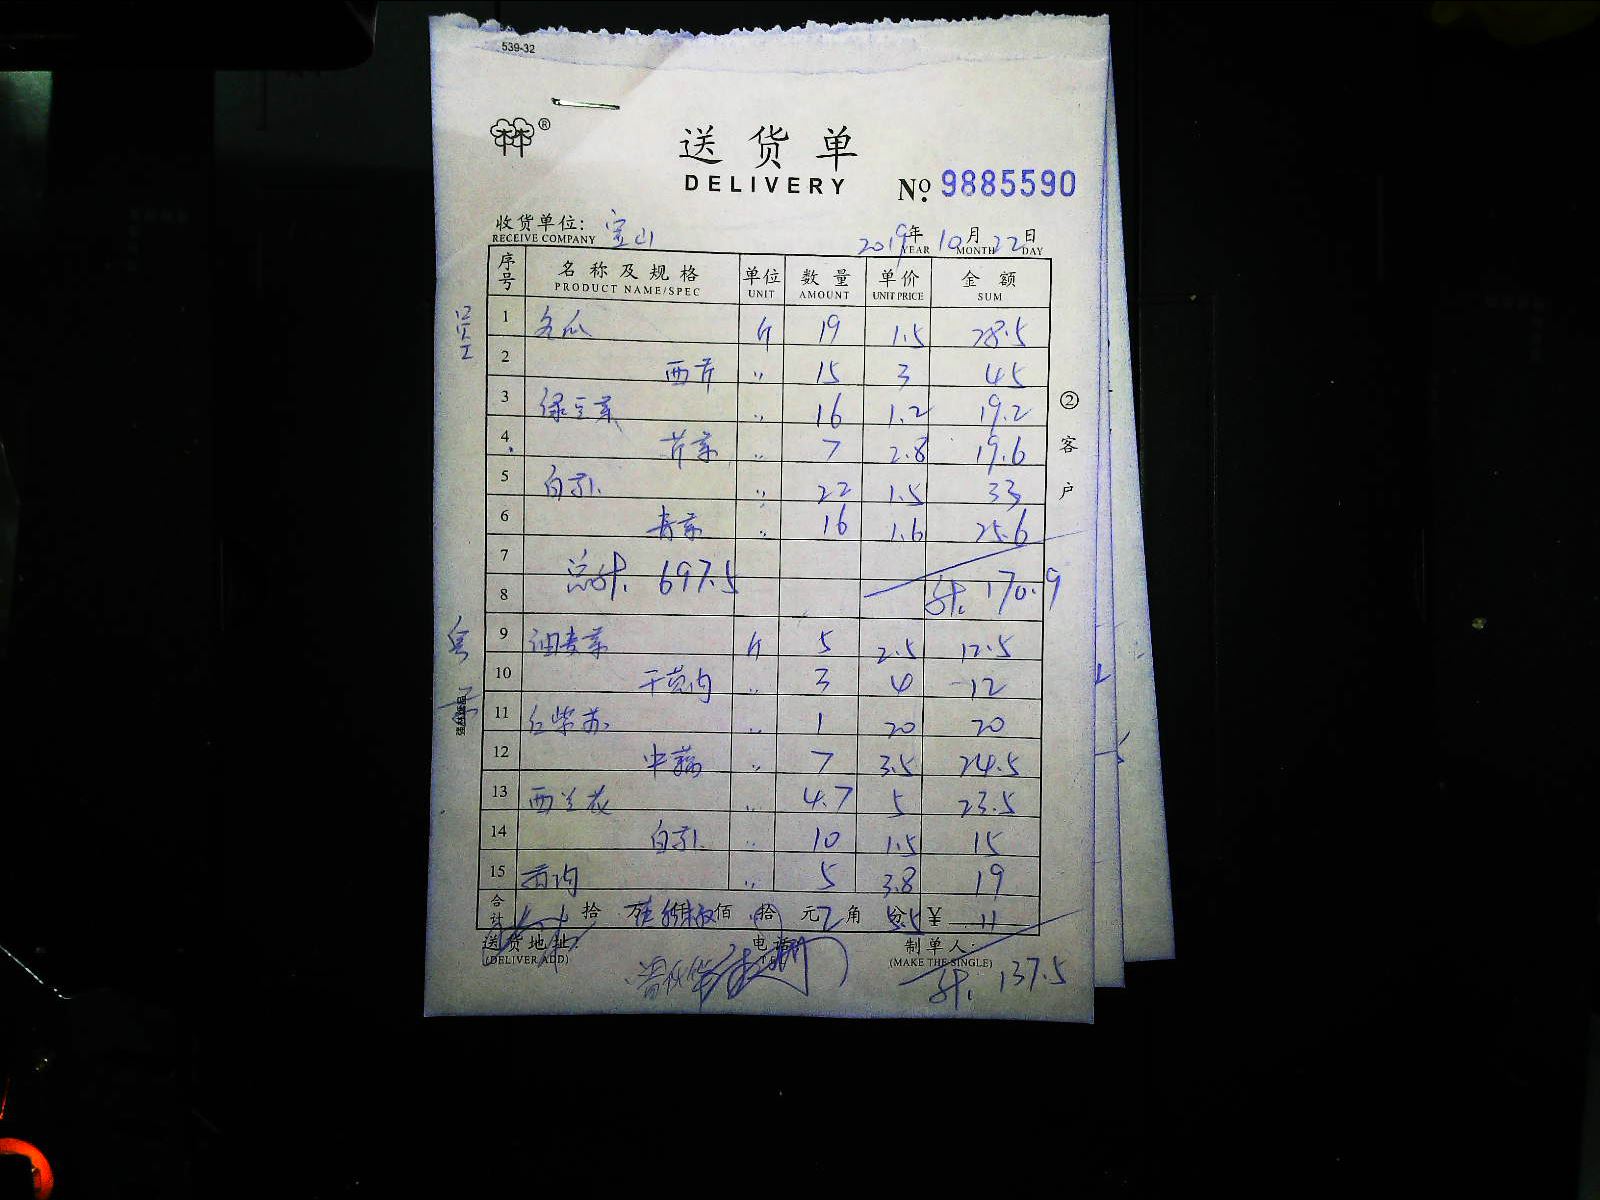 539-32
®
送货单
DELIVERY
No. 9885590
收货单位: 宝山 2019年10月22日
RECEIVE COMPANY YEAR MONTH DAY
序号 名称及规格 单位 数量 单价 金额
PRODUCT NAME/SPEC UNIT AMOUNT UNIT PRICE SUM
1 冬瓜 斤 19 1.5 28.5
2 西芹 〃 15 3 45
3 绿豆芽 〃 16 1.2 19.2
4 芹菜 〃 7 2.8 19.6
5 〃 22 1.5 33
6 青菜 〃 16 1.6 25.6
7 总计. 697.5
8 计. 170.9
9 油麦菜 斤 5 2.5 12.5
10 〃 3 4 12
11 〃 1 20 20
12 中藕 〃 7 3.5 24.5
13 西兰花 〃 4.7 5 23.5
14 〃 10 1.5 15
15 〃 5 3.8 19
合计 拾 万 佰 拾 元 2 角 5.5 分 ¥ 11
送货地址: 电话 制单人:
(DELIVER ADD) (MAKE THE SINGLE)
计. 137.5
②客户